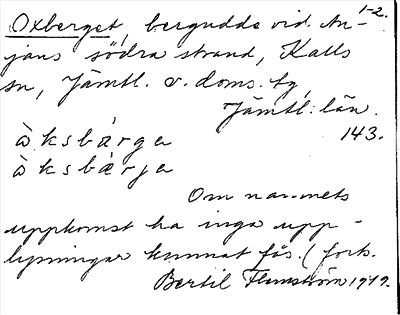 1-2.
Oxberget, bergudde vid An-
jans södra strand, Kalls
sn, Jämtl. v. doms. tg,
Jämtl: län.
143.
òksbärga
òksbärja
Om namnets
uppkomst ha inga upp-
lysningar kunnat fås. (forts.
Bertil Flemström 1919.